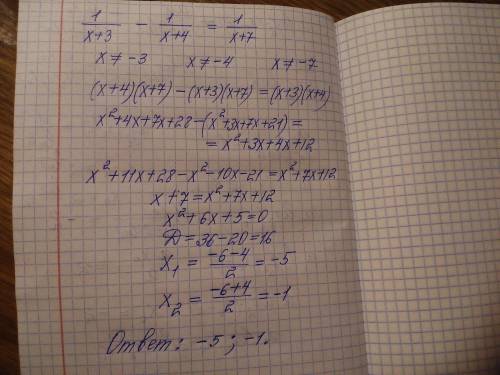 1/(x+3) - 1/(x+4) = 1/(x+7)
x ≠ -3 x ≠ -4 x ≠ -7
(x+4)(x+7) - (x+3)(x+7) = (x+3)(x+4)
x²+4x+7x+28-(x²+3x+7x+21)=
= x²+3x+4x+12
x²+11x+28-x²-10x-21=x²+7x+12
x+7=x²+7x+12
x²+6x+5=0
Д=36-20=16
x₁ = (-6-4)/2 = -5
x₂ = (-6+4)/2 = -1
Ответ: -5; -1.